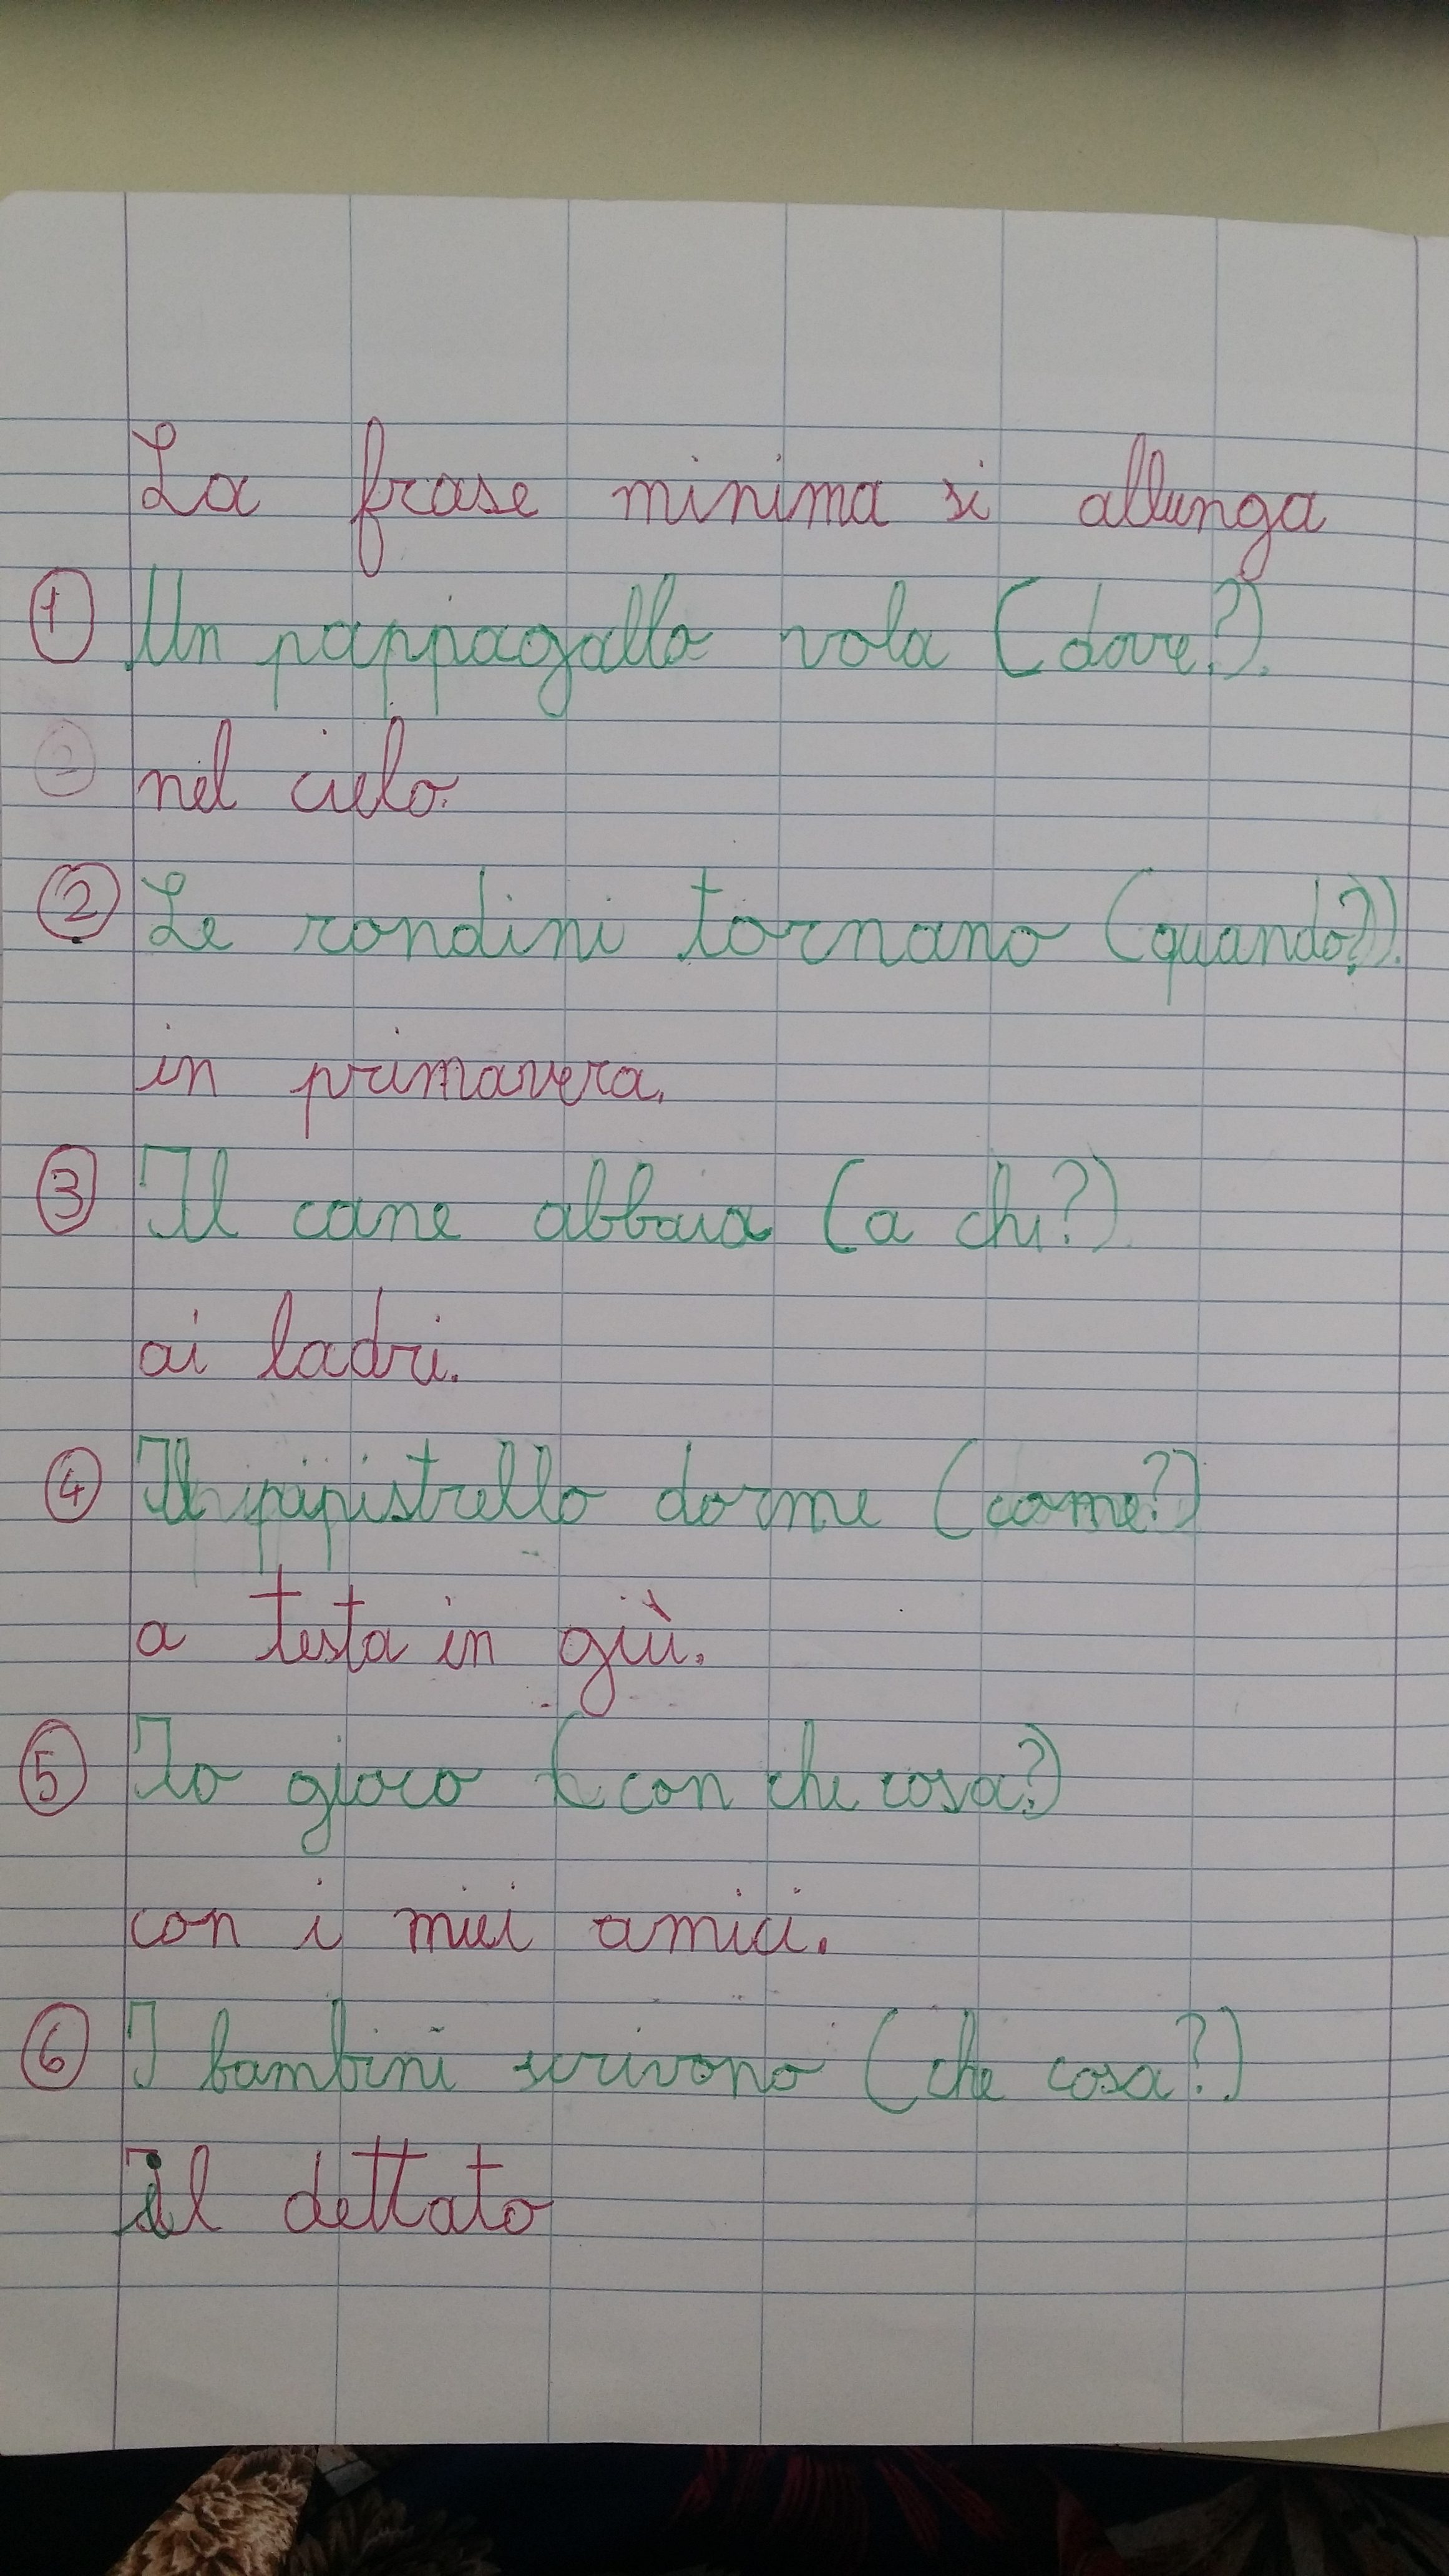 La frase minima si allunga
① Un pappagallo vola (dove?).
② nel cielo.
② Le rondini tornano (quando?).
in primavera.
③ Il cane abbaia (a chi?).
ai ladri.
④ Il pipistrello dorme (come?)
a testa in giù.
⑤ Io gioco (con che cosa?)
con i miei amici.
⑥ I bambini scrivono (che cosa?)
il dettato